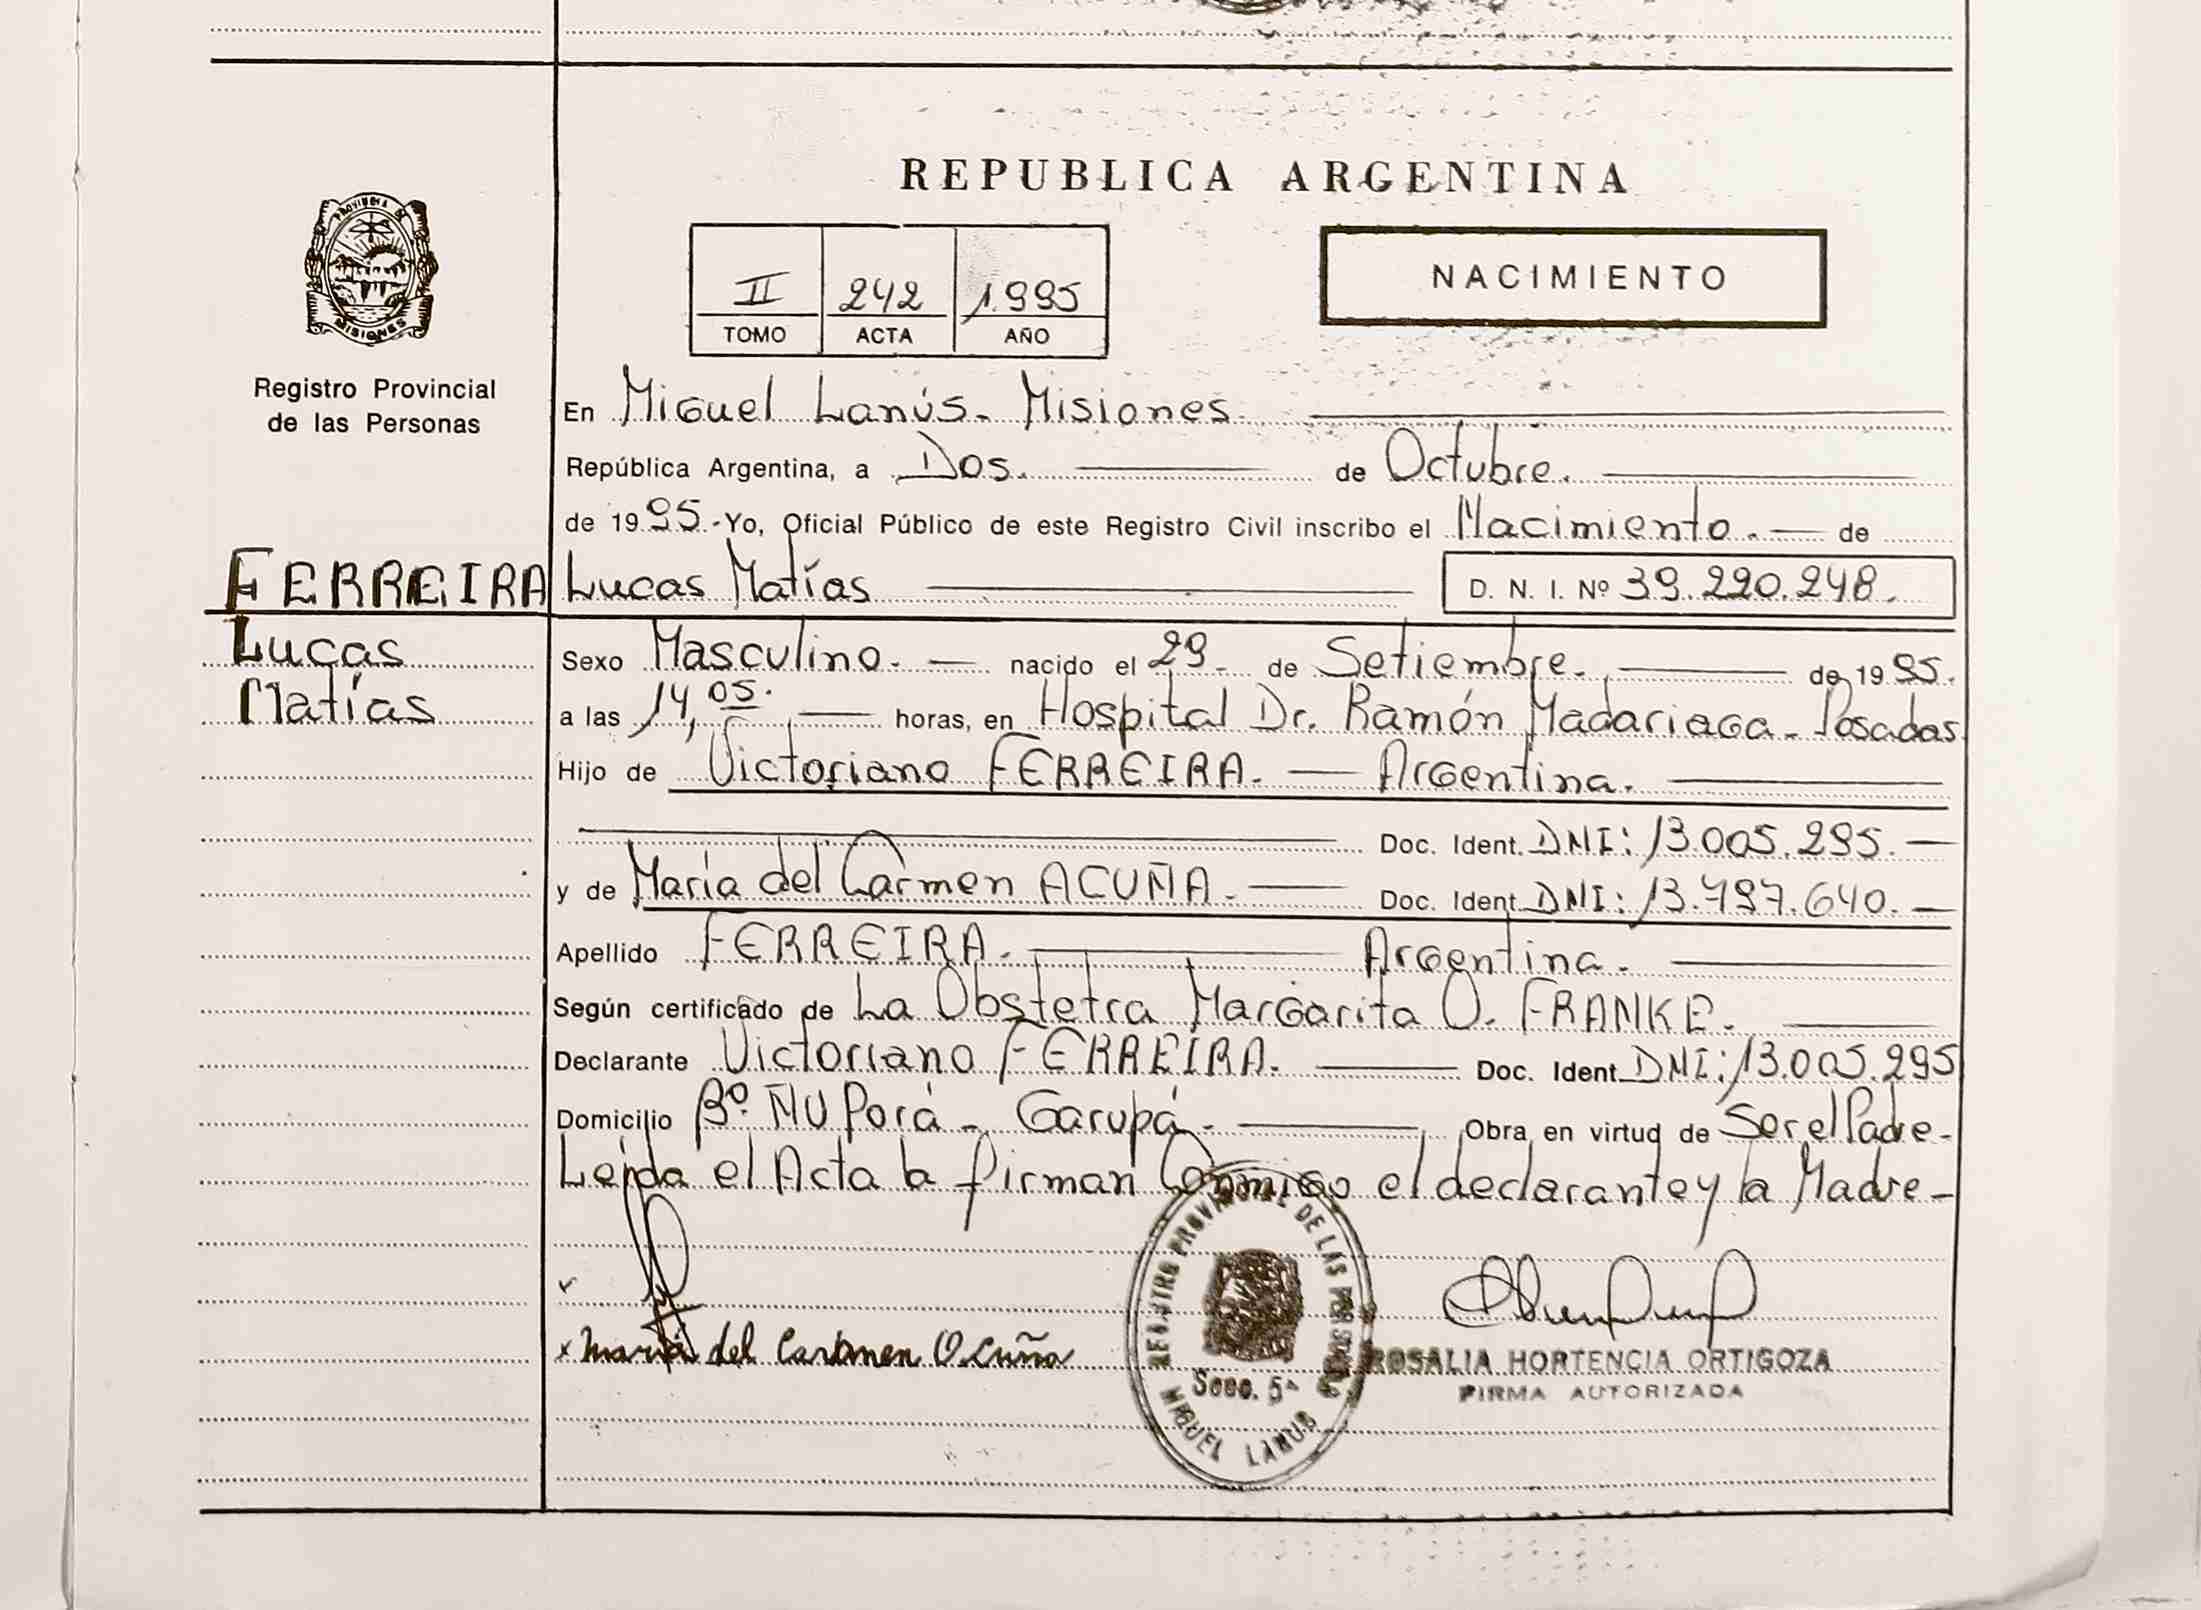 REPUBLICA ARGENTINA
PROVINCIA DE
MISIONES
Registro Provincial
de las Personas
II 242 1.995
TOMO ACTA AÑO
NACIMIENTO
En Miguel Lanús. Misiones.
República Argentina, a Dos. de Octubre.
de 1995.-Yo, Oficial Público de este Registro Civil inscribo el Nacimiento. de
FERREIRA Lucas Matías D. N. I. Nº 39.220.248.
Lucas
Matías
Sexo Masculino. nacido el 29. de Setiembre. de 1995.
a las 14,05. horas, en Hospital Dr. Ramón Madariaga. Posadas
Hijo de Victoriano FERREIRA. Argentina.
Doc. Ident. DNI: 13.005.295.
y de María del Carmen ACUÑA. Doc. Ident. DNI: 13.797.640.
Apellido FERREIRA. Argentina.
Según certificado de La Obstetra Margarita O. FRANKE.
Declarante Victoriano FERREIRA. Doc. Ident. DNI: 13.005.295
Domicilio Bº. ÑU Porá - Garupá. Obra en virtud de Ser el Padre-
Leida el Acta la firman Conmigo el declarante y la Madre-
x María del Carmen Acuña
REGISTRO PROVINCIAL DE LAS PERSONAS
Secc. 5ª
MIGUEL LANUS
ROSALIA HORTENCIA ORTIGOZA
FIRMA AUTORIZADA